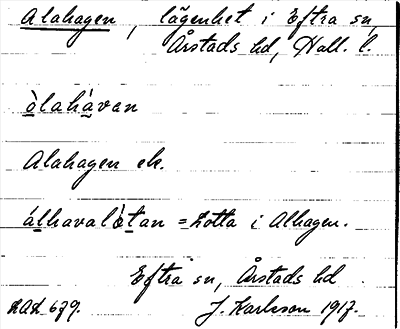 Alahagen, lägenhet i Eftra sn,
Årstads hd, Hall. l.
òlahàvan
Alahagen ek.
álhavalòtan = Lotta i Alhagen.
Eftra sn, Årstads hd
LAL 679. J. Karlsson 1917.